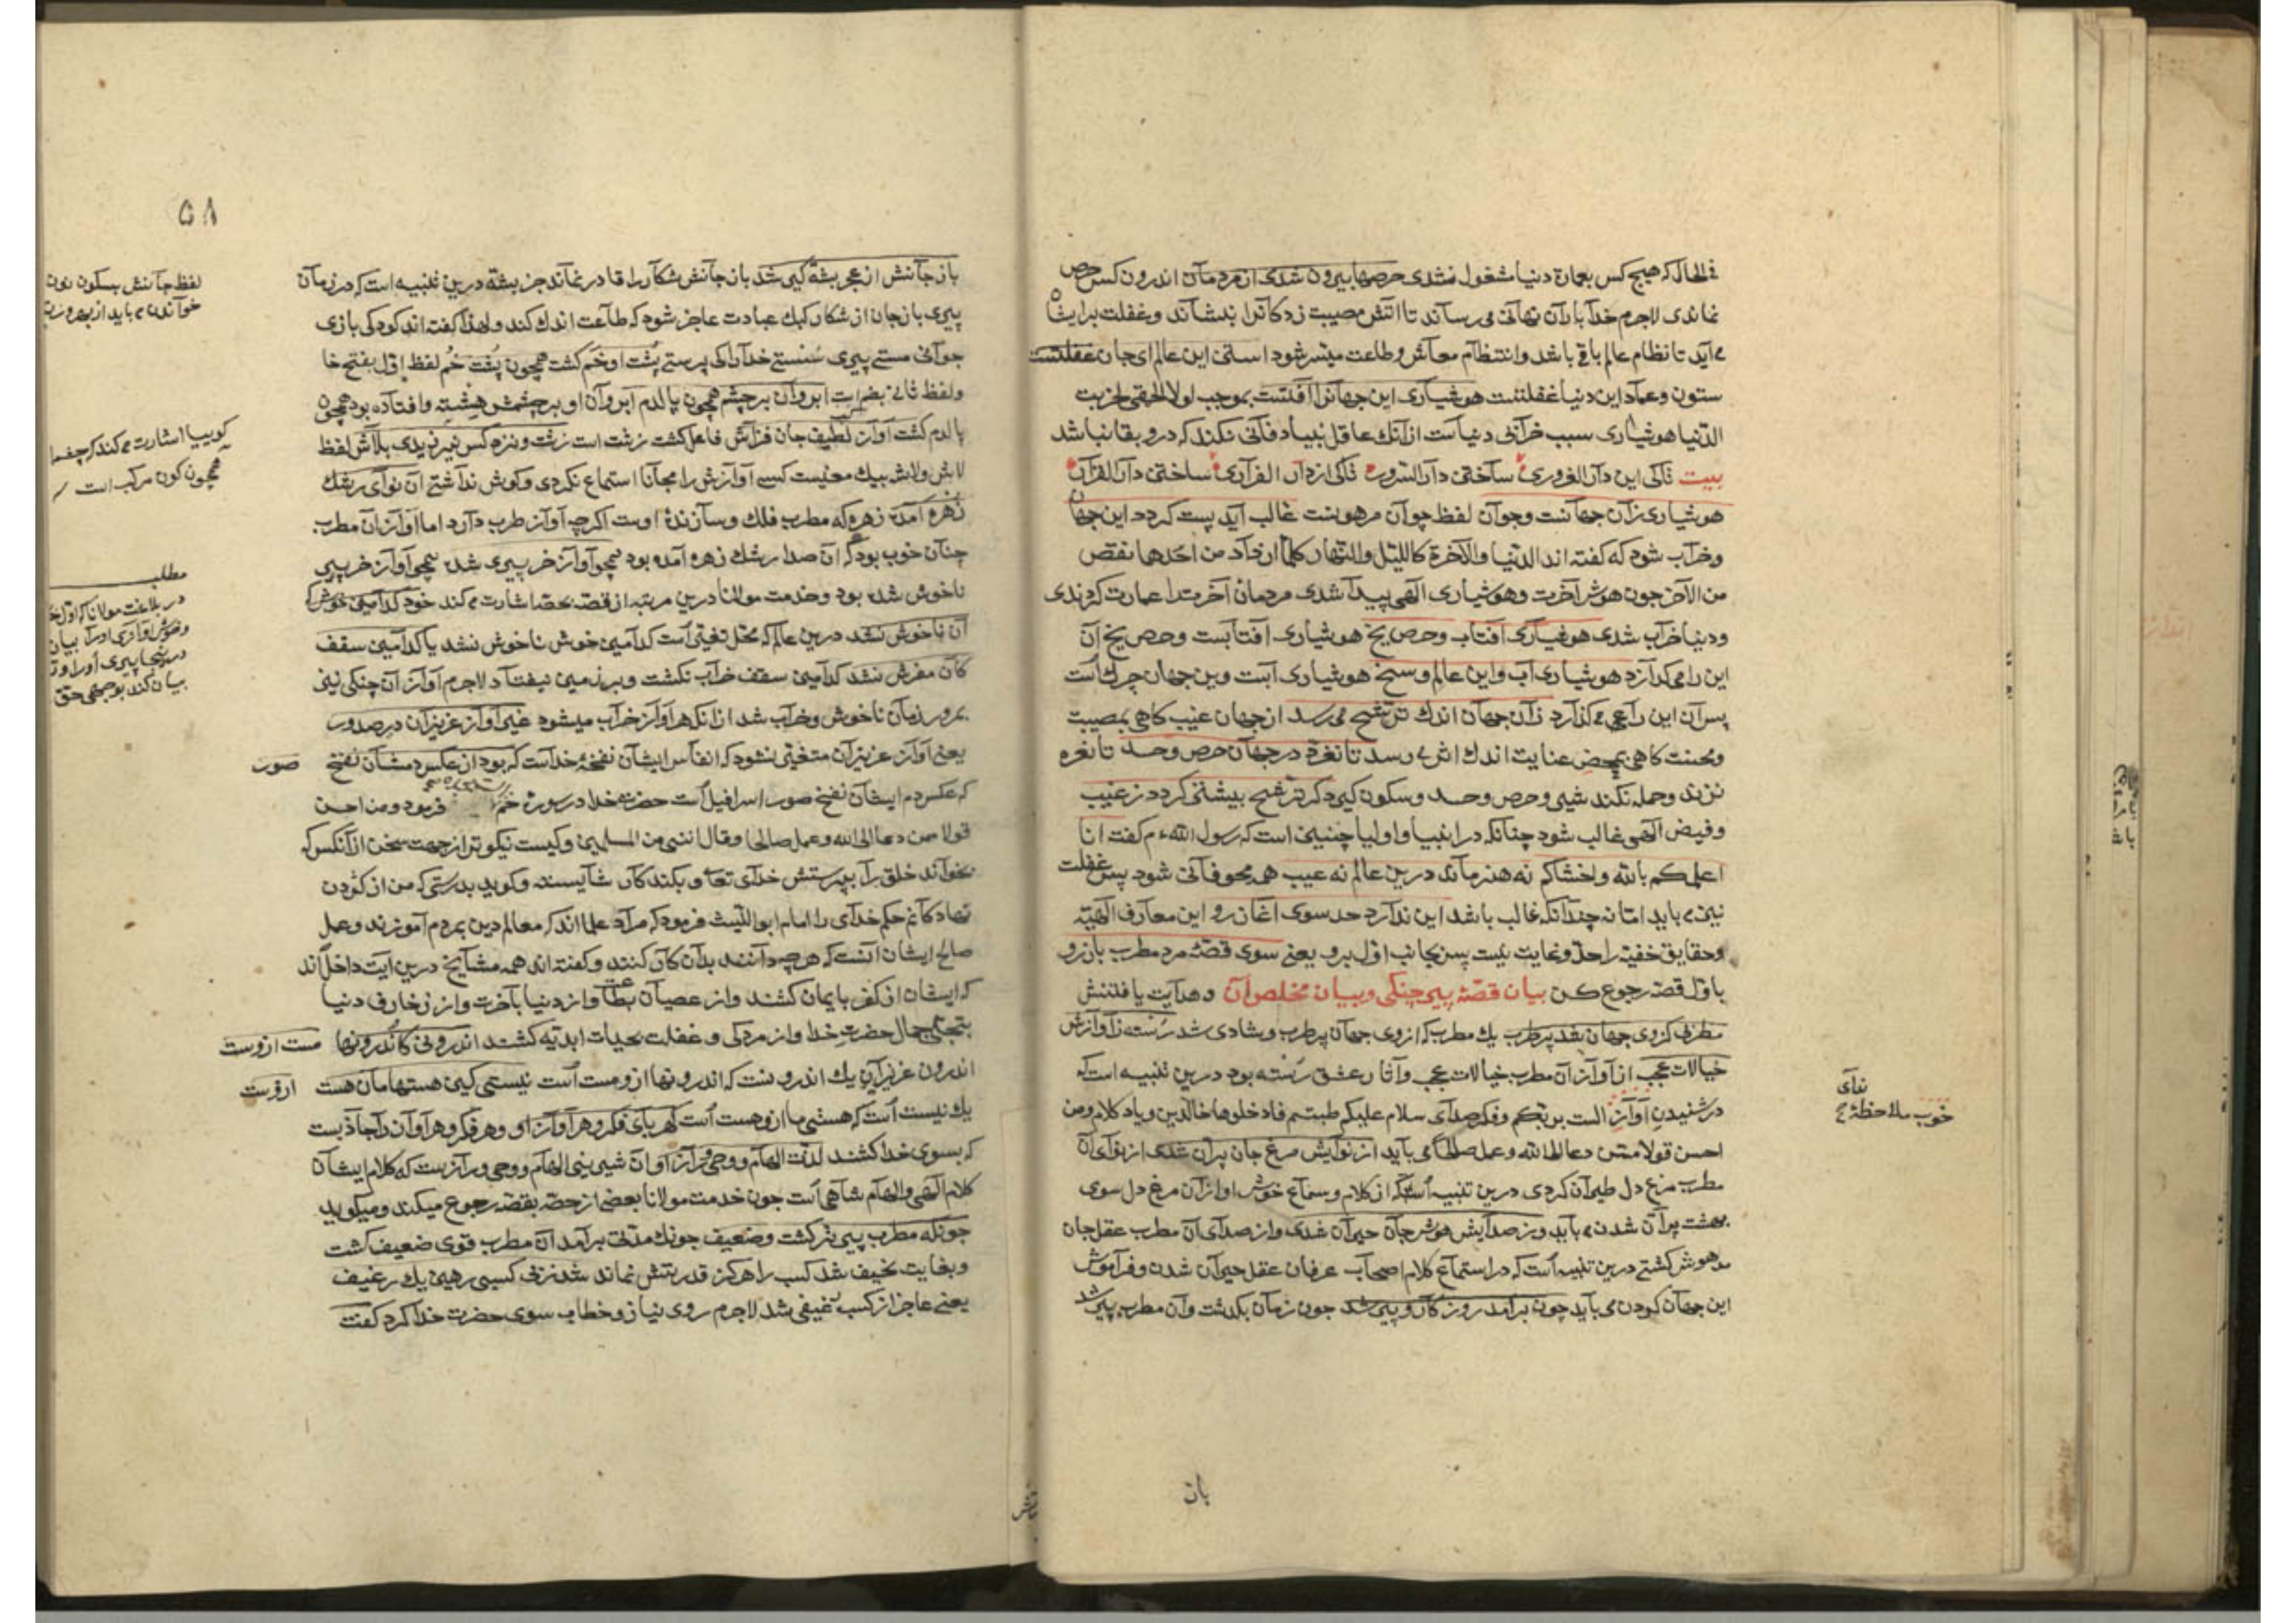 فی الحال که هیچ کس بعمارة دنیا مشغول نشدی حرصها بیرون شدی از مردمان اندرون کس حرص
نماندی لاجرم خدا باران نهانی می رساند تا آتش مصیبت زدکانرا بنشاند وغفلت برایشان
می آید تا نظام عالم باقی باشد وانتظام معاش وطاعت میسر شود استن این عالم ای جان غفلتست
ستون وعماد این دنیا غفلتست هوشیاری این جهانرا آفتست بموجب لولا الحمقی لخربت
الدنیا هوشیاری سبب خرابی دنیاست از آنک عاقل بنیاد فانی نکند که درو بقا نباشد
بیت تاکی این دار الغروری ساختن دار السرور تاکی از دار الفراری ساختن دار القرار
هوشیاری زان جهانست وچو آن لفظ چو آن مرهونست غالب آید پست کردد این جهان
وخراب شود که کفته اند الدنیا والآخرة کاللیل والنهار کلما ازداد من احدها نقص
من الآخر چون هوش آخرت وهوشیاری الهی پیدا شدی مردمان آخرت را عمارت کردندی
ودنیا خراب شدی هوشیاری آفتاب وحرص یخ هوشیاری آفتابست وحرص یخ آن
این را می کدازد هوشیاری آب واین عالم وسخ هوشیاری آبست وین جهان چرک است
پس آن این را می کذارد زان جهان اندک ترشح می رسد از جهان غیب کاهی بمصیبت
ومحنت کاهی بمحض عنایت اندک اثر می رسد تا نغرد در جهان حرص وحسد تا نغره
نزند وحمله نکند شیر وحرص وحسد وسکون کیرد کر ترشح بیشتر کردد ز غیب
وفیض الهی غالب شود چنانکه در انبیا واولیا چنین است که رسول الله ء م کفت انا
اعلمکم بالله واخشاکم نه هنر ماند درین عالم نه عیب هم محو فانی شود پس غفلت
نیز می باید اما نه چندانکه غالب باشد این ندارد حد سوی آغاز رو این معارف الهیه
وحقایق خفیه را حد ونهایت نیست پس بجانب اول برو یعنی سوی قصه مرد مطرب باز رو
باول قصه رجوع کن بیان قصه پیر چنکی وبیان مخلص آن وهدایت یافتنش
مطربی کز وی جهان شد پر طرب یک مطرب که از وی جهان پر طرب وشادی شد رسته ز آوازش
خیالات عجب از آواز آن مطرب خیالات عجب وآثار عشق رسته بود درین تنبیه است که
در شنیدن آواز الست بربکم وفکر صدای سلام علیکم طبتم فادخلوها خالدین ویاد کلام ومن
احسن قولا ممن دعا الی الله وعمل صالحا می باید از نوایش مرغ جان پران شدی از نوای آن
مطرب مرغ دل طیران کردی درین تنبیه است که از کلام وسماع خوش آواز آن مرغ دل سوی
بهشت پران شدن می باید وز صدایش هوش جان حیران شدی واز صدای آن مطرب عقل جان
مدهوش کشتی درین تنبیه است که در استماع کلام اصحاب عرفان عقل حیران شدن وفراموش
این جهان کردن می باید چون برآمد روزکار وپیر شد چون زمان بکذشت وآن مطرب پیر شد
ندای
خوب ملاحظه
باز
۵۸
باز جانش از عجز پشه کیر شد باز جانش شکار را قادر نماند جز پشه درین تنبیه است که در زمان
پیری باز جان از شکار کبک عبادت عاجز شود که طاعت اندک کند ولهذا کفته اند کودکی بازی
جوانی مستی پیری سستی خدا را کی پرستی پشت او خم کشت همچون پشت خم لفظ اول بفتح خا
ولفظ ثانی بضم است ابروان بر چشم همچون پالدم ابروان او بر چشمش هشته وافتاده بود همچون
پالدم کشت آواز لطیف جان فزاش فاعل کشت زشت است زشت ونزد کس نیرزیدی بلاش لفظ
لاش ولاش بیک معنیست کسی آوازش را مجانا استماع نکردی وکوش نداشتی آن نوای رشک
زهره آمده زهره که مطرب فلک وسازنده اوست اکرچه آواز طرب دارد اما آواز آن مطرب
چنان خوب بود که آن صدا رشک زهره آمده بود همچو آواز خر پیری شده همچو آواز خر پیر
ناخوش شده بود وخدمت مولانا درین مرتبه از قصه بحصه اشارت می کند خود کدامین خوش که
آن ناخوش نشد درین عالم که محل تغیر است کدامین خوش ناخوش نشد یا کدامین سقف
کان مفرش نشد کدامین سقف خراب نکشت وبر زمین نیفتاد لاجرم آواز آن چنکی نیز
بمرور زمان ناخوش وخراب شد از آنکه هر آواز خراب میشود غیر آواز عزیزان در صدور
یعنی آواز عزیزان متغیر نشود که انفاس ایشان نفخه خداست که بود از عکس دمشان نفخ صور
که عکس دم ایشان نفخ صور اسرافیل است حضرت خدا در سوره حم فرمود ومن احسن
قولا ممن دعا الی الله وعمل صالحا وقال اننی من المسلمین وکیست نیکوتر از جهت سخن از آنکس که
بخواند خلق را بپرستش خدای تعا وبکند کار شایسته وکوید بدرستی که من از کردن
نهادکانم حکم خدای را امام ابو اللیث فرمود که مراد علما اند که معالم دین بمردم آموزند وعمل
صالح ایشان آنست که هرچه دانند بدان کار کنند وکفته اند همه مشایخ درین آیت داخل اند
که ایشان از کفر بایمان کشند واز عصیان بطاعت واز دنیا بآخرت واز زخارف دنیا
بتجلی جمال حضرت خدا واز مردکی وغفلت بحیات ابدیه کشند اندرونی کاندرونها مست ازوست
اندرون عزیزان یک اندرونست که اندرونها ازو مست است نیستی کین هستهامان هست ازوست
یک نیست است که هستی ما ازو هست است کهربای فکر وهر آواز او وهر فکر وهر آواز را جاذبست
که بسوی خدا کشند لذت الهام ووحی وراز او آن شیرینی الهام ووحی ورازست که کلام ایشان
کلام الهی والهام شاهی است چون خدمت مولانا بعضی از حصه بقصه رجوع میکند ومیکوید
چونکه مطرب پیرتر کشت وضعیف چونک مدتی برآمد آن مطرب قوی ضعیف کشت
وبغایت نحیف شد کسب را هرکز قدرتش نماند شد ز بی کسبی رهین یک رغیف
یعنی عاجز از کسب رغیفی شد لاجرم روی نیاز وخطاب سوی حضرت خدا کرد کفت
لفظ جانش بسکون نون
خواندن می باید از بهر وزن
کوییا اشارت می کند که چغما
همچون کون مرکب است
مطلب
در بلاغت مولانا که اول
وخوش آوازی اورا بیان
درینجا پیری اورا
بیان کند بوجهی حق